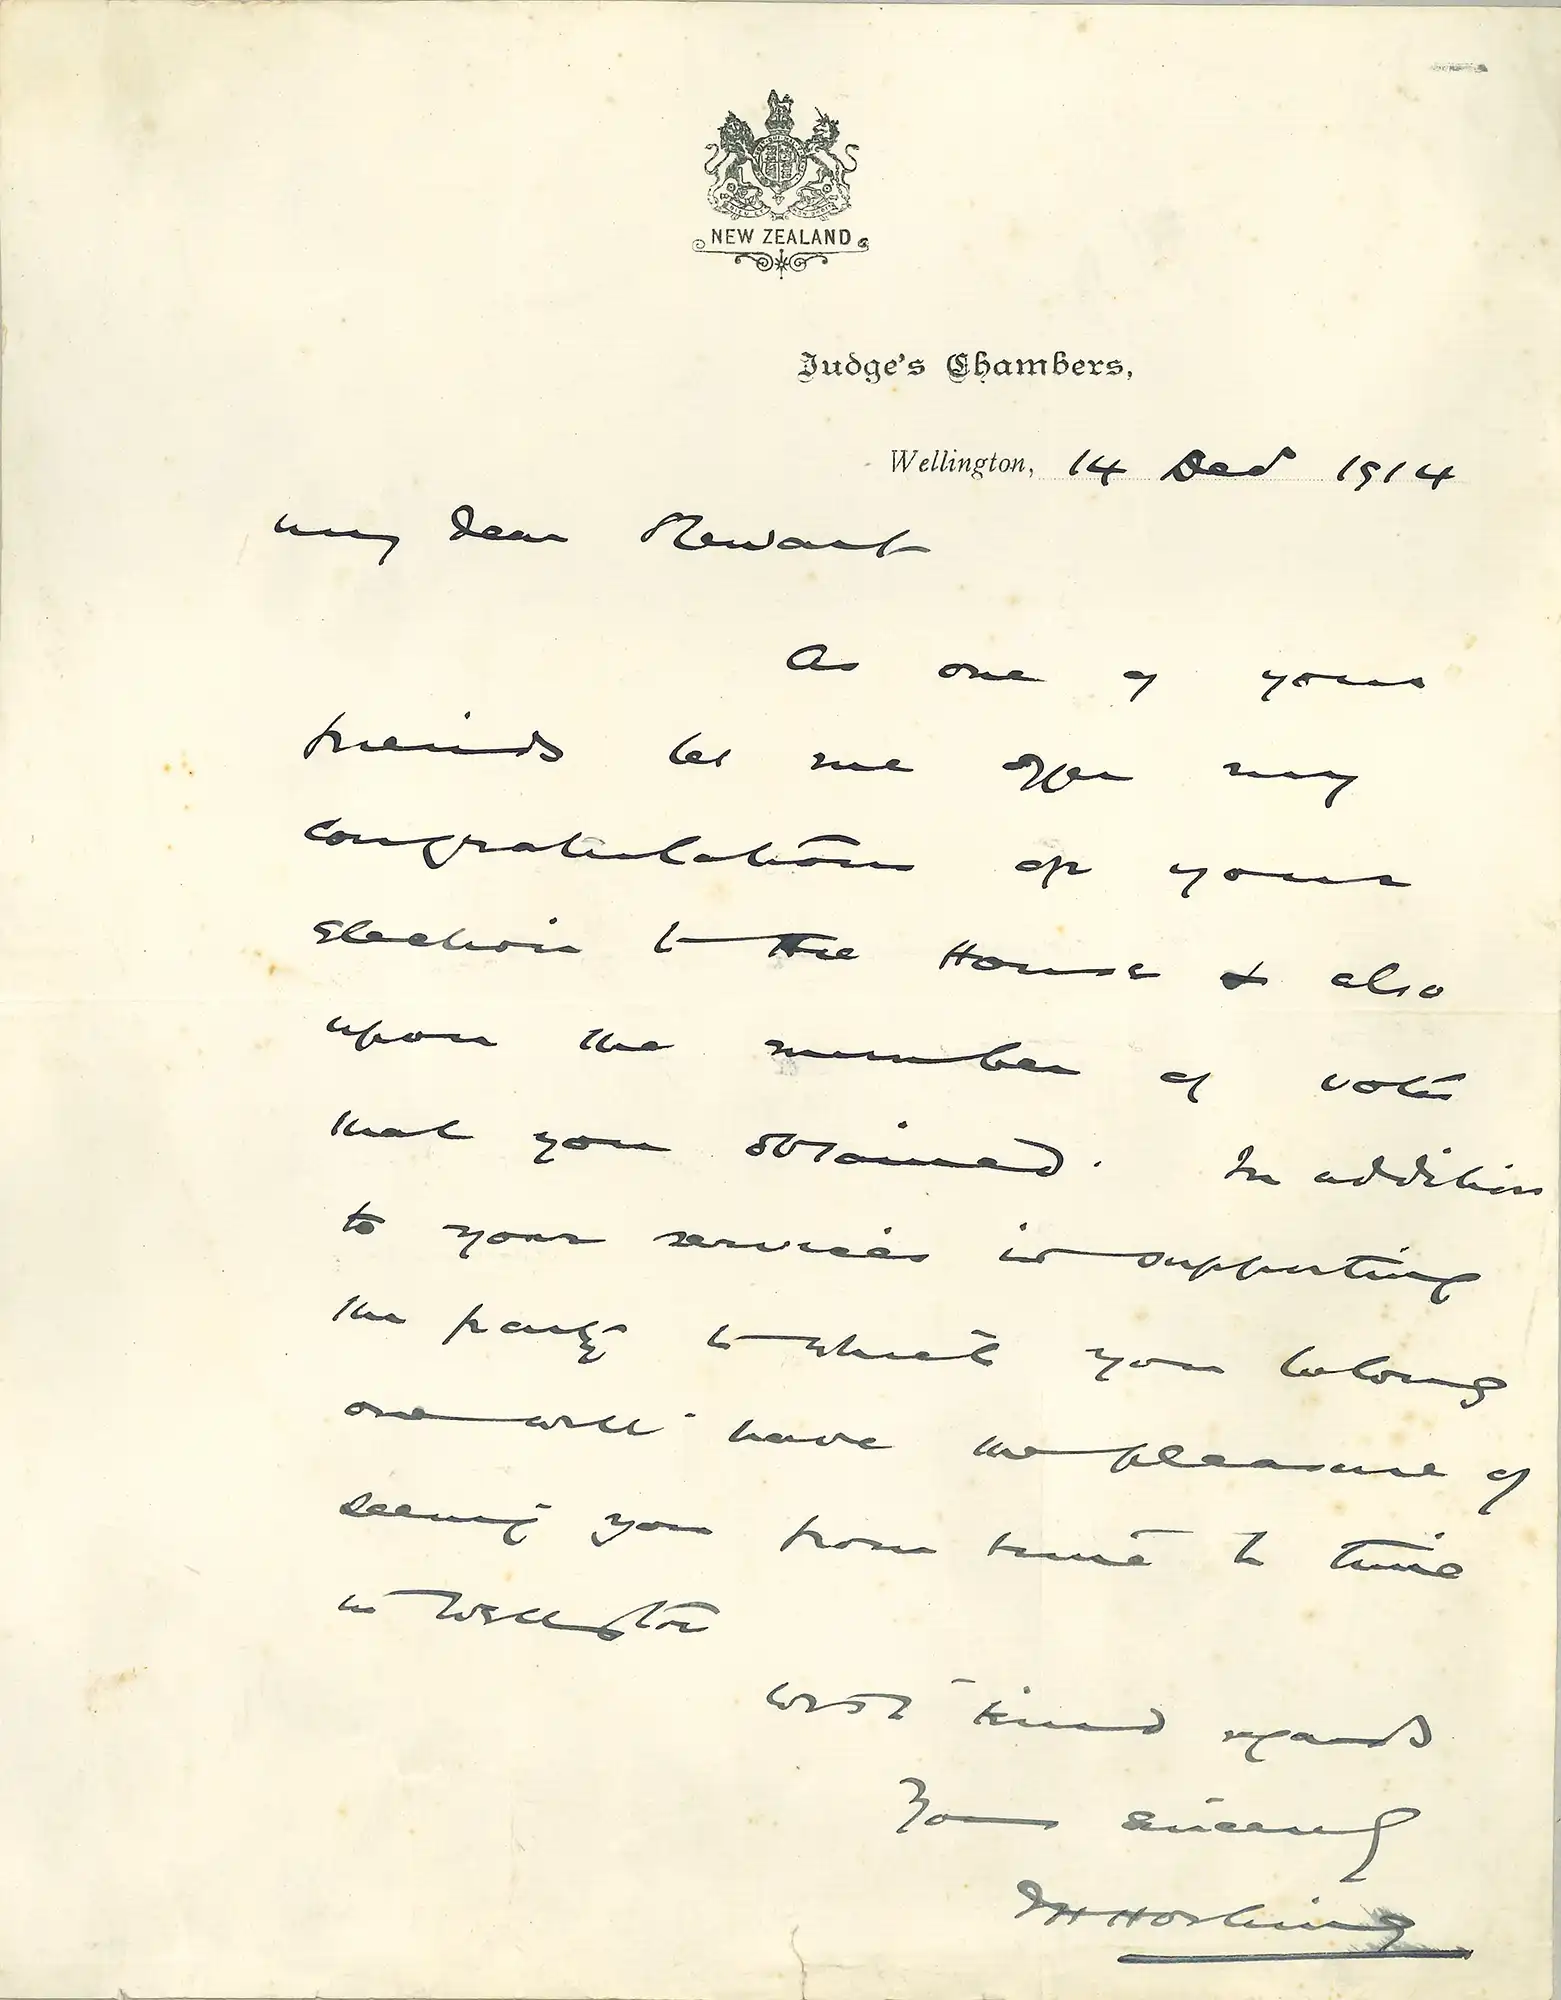 NEW ZEALAND
Judge's Chambers,
Wellington, 14 Dec 1914
My dear Stewart
As one of your
friends let me offer my
congratulations on your
Election to the House & also
upon the number of votes
that you obtained. In addition
to your services in supporting
the party to which you belong
one will have the pleasure of
seeing you from time to time
in Wellington
With kind regards
Yours sincerely
JHHosking